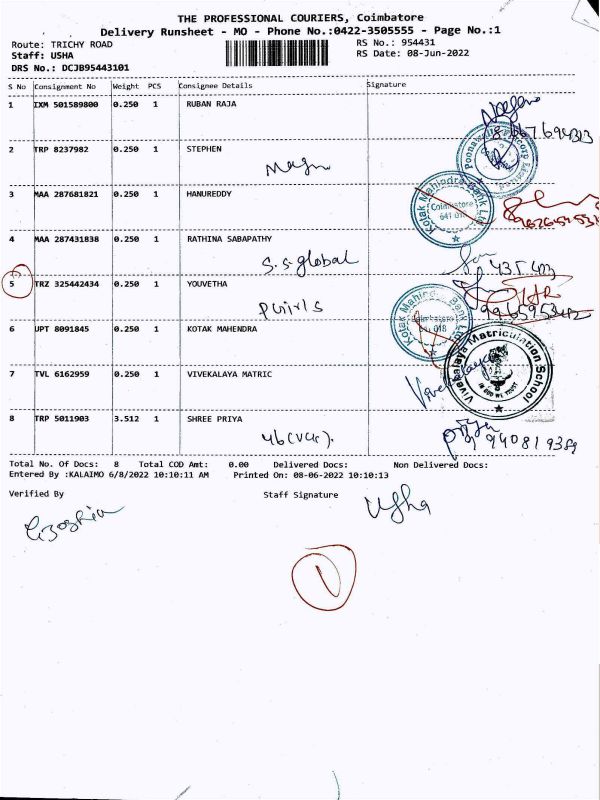 THE PROFESSIONAL COURIERS, Coimbatore
Delivery Runsheet - MO - Phone No.:0422-3505555 - Page No.:1
Route: TRICHY ROAD RS No.: 954431
Staff: USHA RS Date: 08-Jun-2022
DRS No.: DCJB95443101
S No Consignment No Weight PCS Consignee Details Signature
1 IXM 501589800 0.250 1 RUBAN RAJA
2 TRP 8237982 0.250 1 STEPHEN
3 MAA 287681821 0.250 1 HANUREDDY
Kotak Mahindra Bank Ltd
Coimbatore
641 018
4 MAA 287431838 0.250 1 RATHINA SABAPATHY
S.S.global
5 TRZ 325442434 0.250 1 YOUVETHA
6 UPT 8091845 0.250 1 KOTAK MAHENDRA
Kotak Mahindra Bank Ltd
Coimbatore
641 018
7 TVL 6162959 0.250 1 VIVEKALAYA MATRIC
Vivekalaya
Vivekalaya Matriculation School
IN GOD WE TRUST
8 TRP 5011903 3.512 1 SHREE PRIYA
Priya
Total No. Of Docs: 8 Total COD Amt: 0.00 Delivered Docs: Non Delivered Docs:
Entered By :KALAIMO 6/8/2022 10:10:11 AM Printed On: 08-06-2022 10:10:13
Verified By Staff Signature
Usha
1